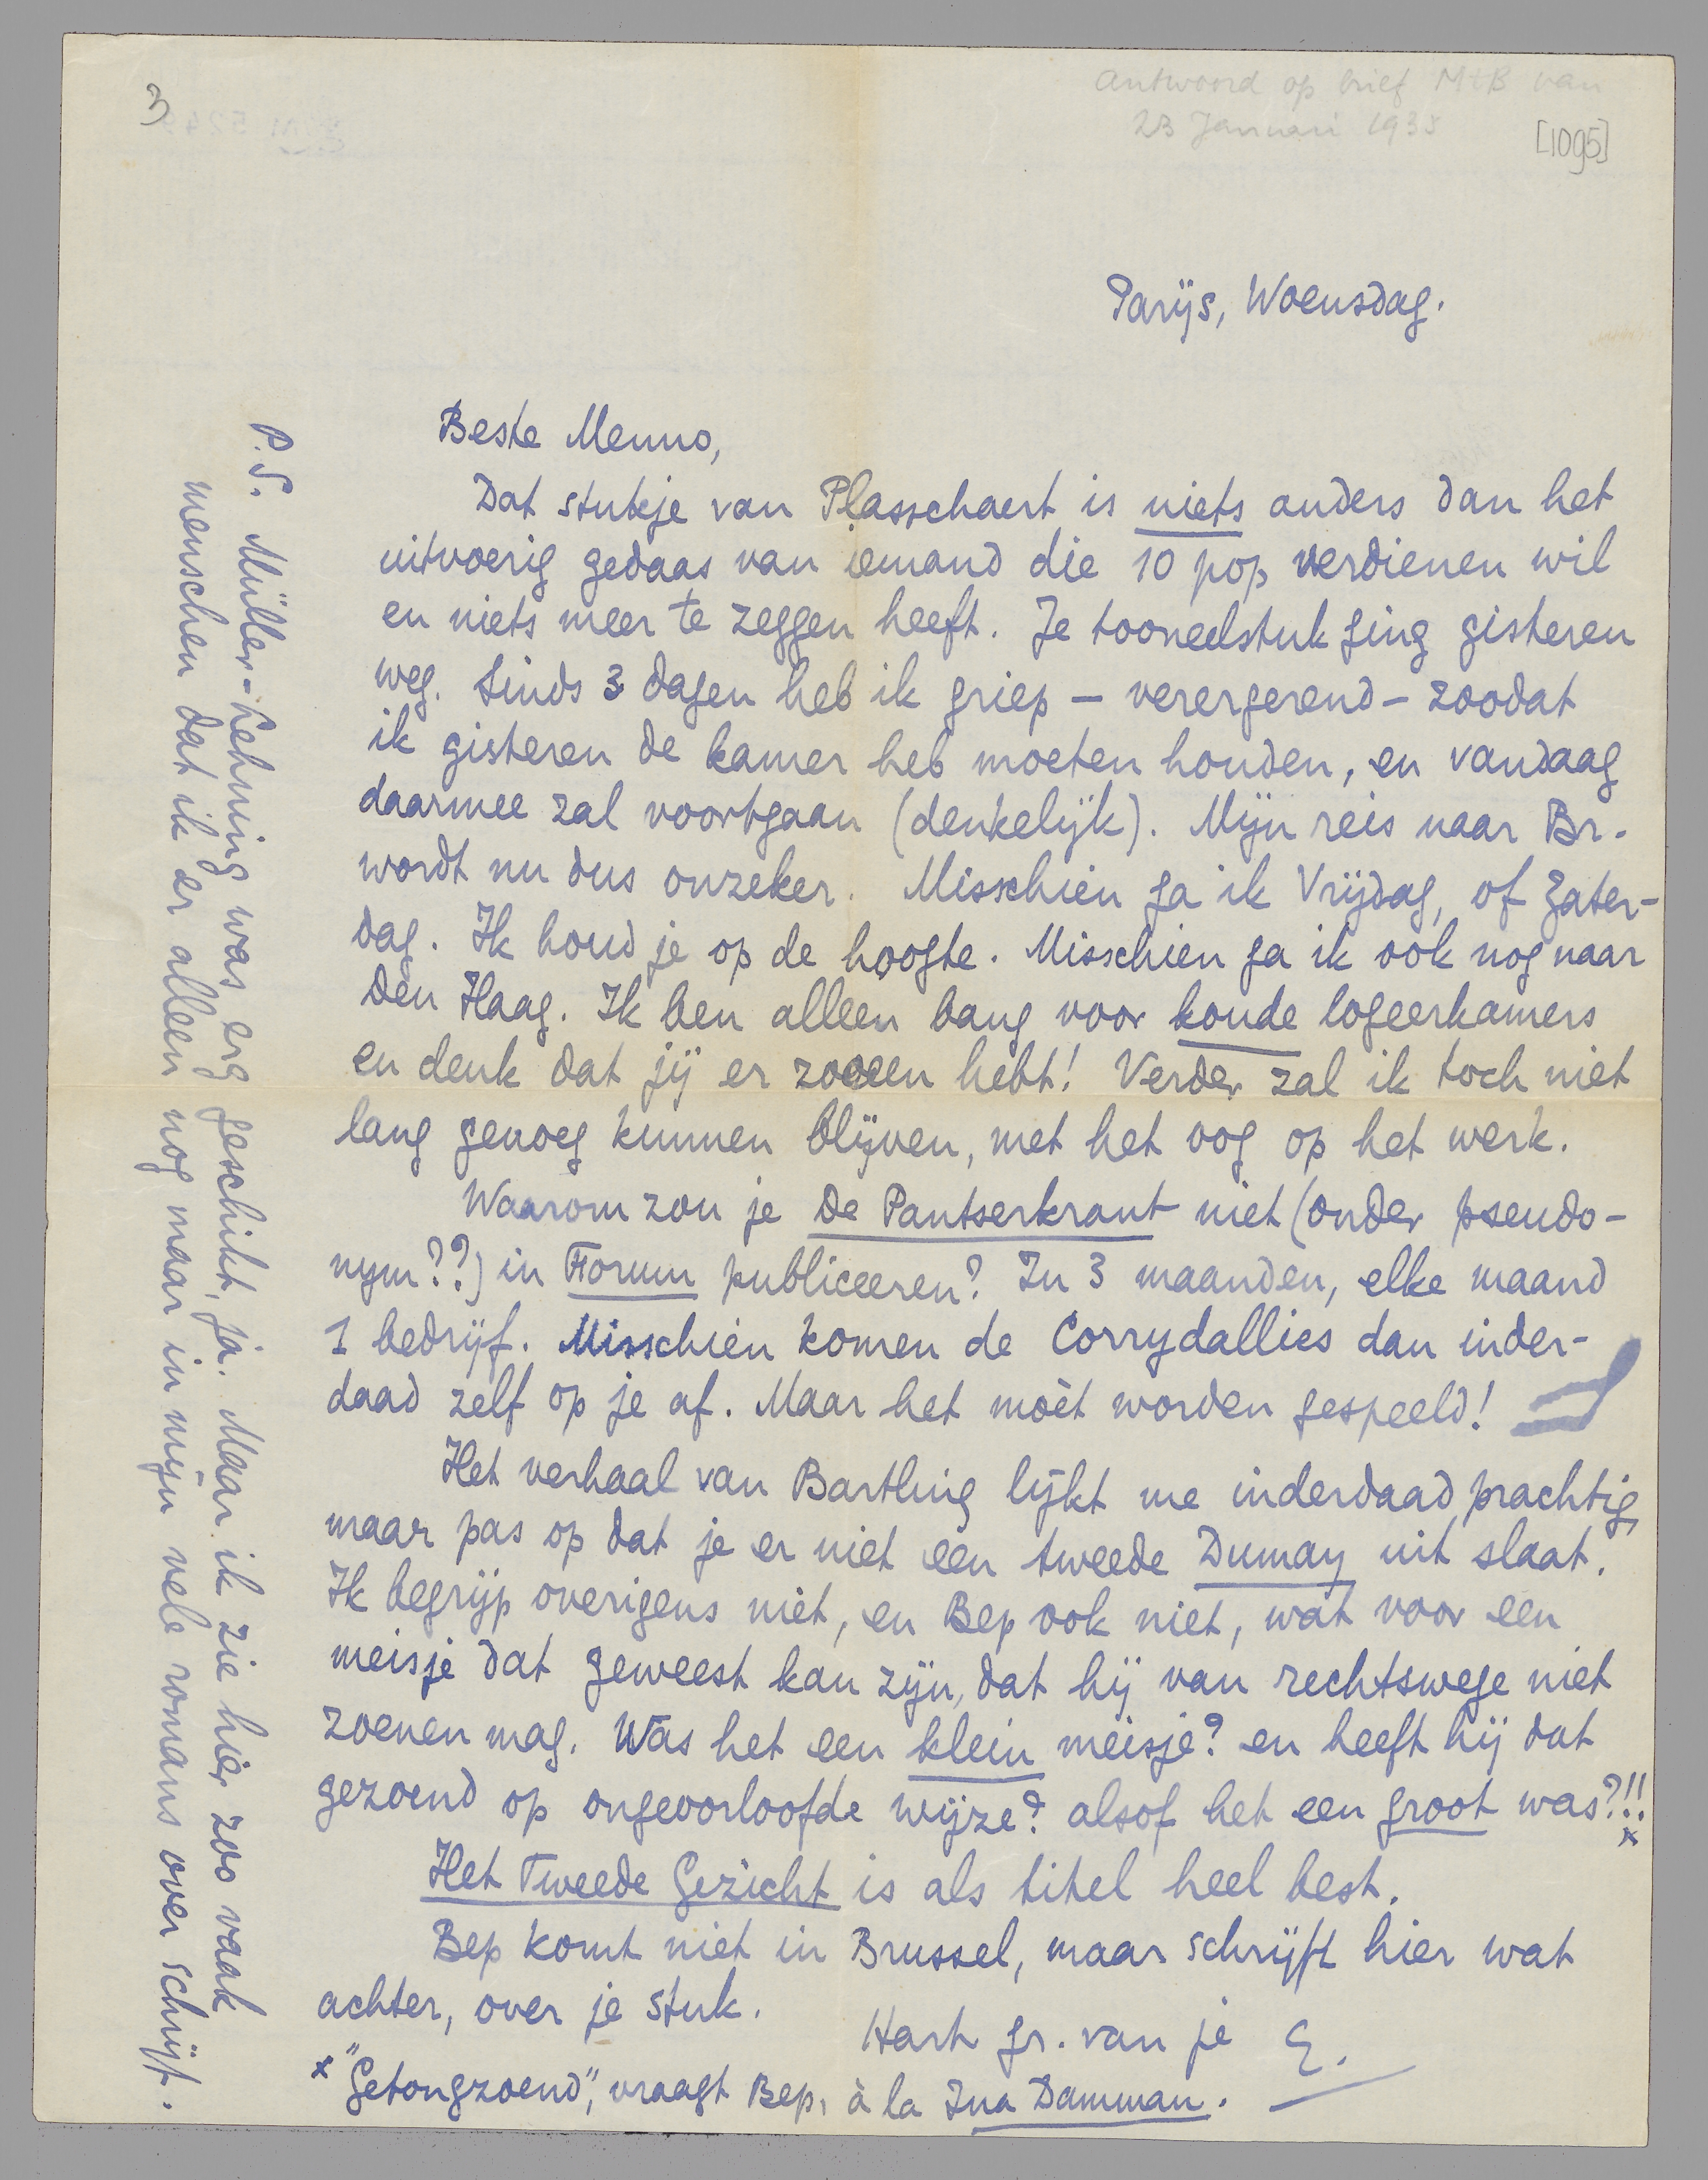 3
Antwoord op brief MtB van
23 Januari 1935
[1095]
Parijs, Woensdag.
Beste Menno,
Dat stukje van Plasschaert is niets anders dan het
uitvoerig gedaas van iemand die 10 pop verdienen wil
en niets meer te zeggen heeft. Je tooneelstuk ging gisteren
weg. Sinds 3 dagen heb ik griep — verergerend — zoodat
ik gisteren de kamer heb moeten houden, en vandaag
daarmee zal voortgaan (denkelijk). Mijn reis naar Br.
wordt nu dus onzeker. Misschien ga ik Vrijdag, of Zater-
dag. Ik houd je op de hoogte. Misschien ga ik ook nog naar
Den Haag. Ik ben alleen bang voor koude logeerkamers
en denk dat jij er zooeen hebt! Verder zal ik toch niet
lang genoeg kunnen blijven, met het oog op het werk.
Waarom zou je De Pantserkrant niet (onder pseudo-
nym??) in Forum publiceeren? In 3 maanden, elke maand
1 bedrijf. Misschien komen de Corrydallies dan inder-
daad zelf op je af. Maar het moèt worden gespeeld!
Het verhaal van Bartling lijkt me inderdaad prachtig,
maar pas op dat je er niet een tweede Dumay uit slaat.
Ik begrijp overigens niet, en Bep ook niet, wat voor een
meisje dat geweest kan zijn, dat hij van rechtswege niet
zoenen mag. Was het een klein meisje? en heeft hij dat
gezoend op ongeoorloofde wijze? alsof het een groot was?!!
x
Het Tweede Gezicht is als titel heel best.
Bep komt niet in Brussel, maar schrijft hier wat
achter, over je stuk.
Hart gr. van je E.
x "Getongzoend", vraagt Bep, à la Ina Damman.
P.S. Müller-Lehning was erg geschikt, ja. Maar ik zie hier zoo vaak
menschen dat ik er alleen nog maar in mijn vele romans over schrijf.